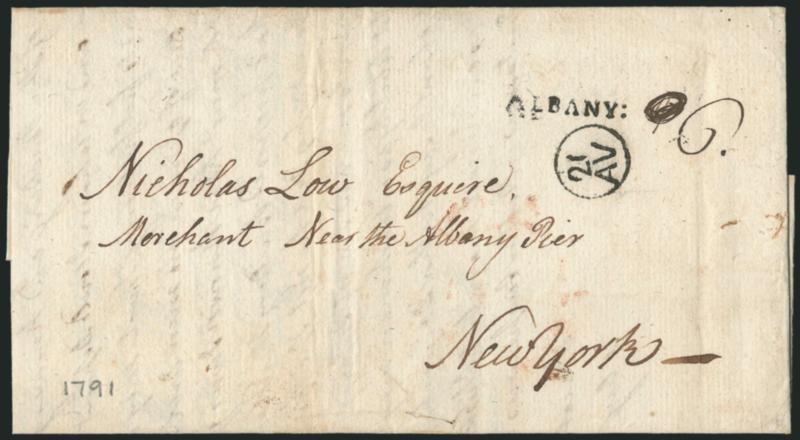 ALBANY:
6.
21
AV
Nicholas Low Esquire,
Merchant Near the Albany Pier
New York
1791